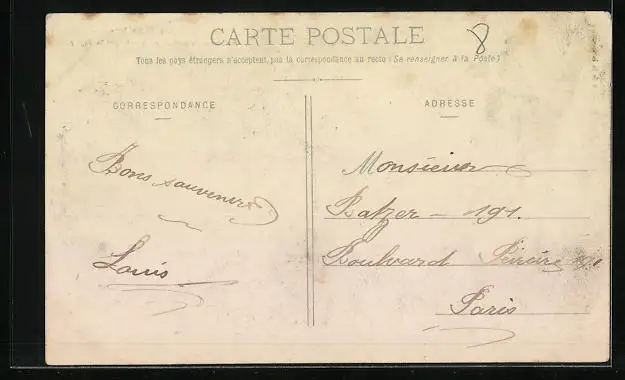 CARTE POSTALE
8
Tous les pays étrangers n'acceptent pas la correspondance au recto (Se renseigner à la Poste)
CORRESPONDANCE
ADRESSE
Bons souvenirs
Louis
Monsieur
Batzer - 191.
Boulevard Pereire 191
Paris